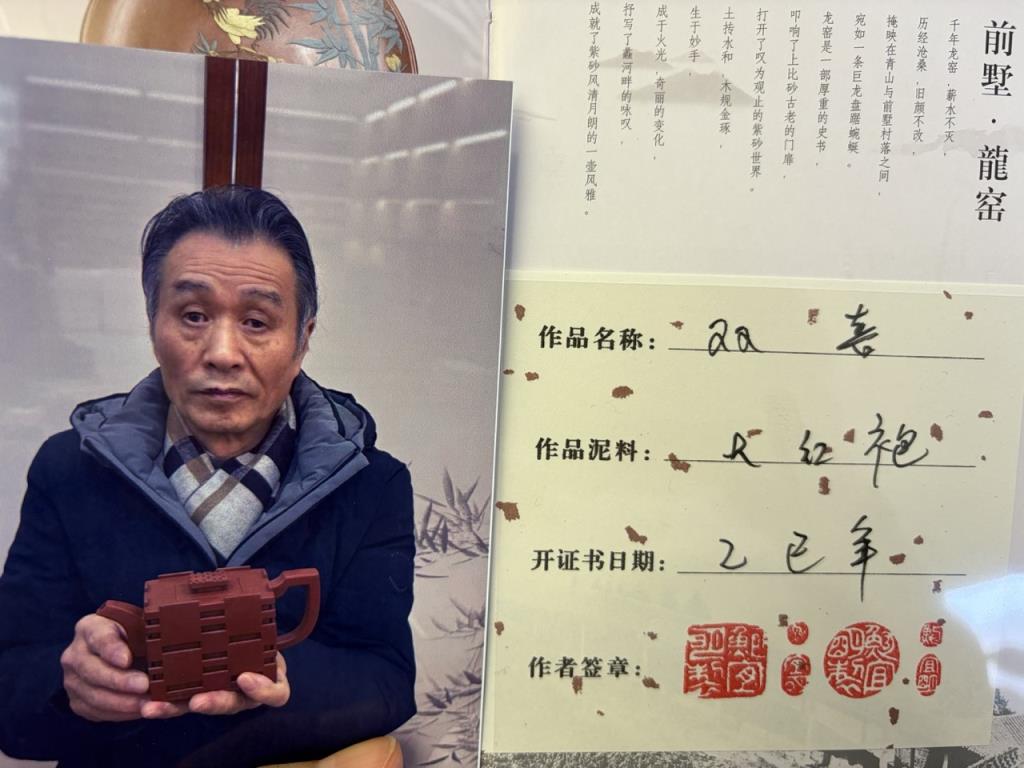 前墅·龍窑
千年龙窑，薪水不灭，
历经沧桑，旧颜不改，
掩映在青山与前墅村落之间，
宛如一条巨龙盘踞蜿蜒。
龙窑是一部厚重的史书，
叩响了上比砂古老的门扉，
打开了叹为观止的紫砂世界。
土抟水和，木规金琢，
生于妙手，
成于火光，奇丽的变化，
抒写了蠡河畔的咏叹，
成就了紫砂风清月朗的一壶风雅。
作品名称：双喜
作品泥料：大红袍
开证书日期：乙巳年
作者签章：